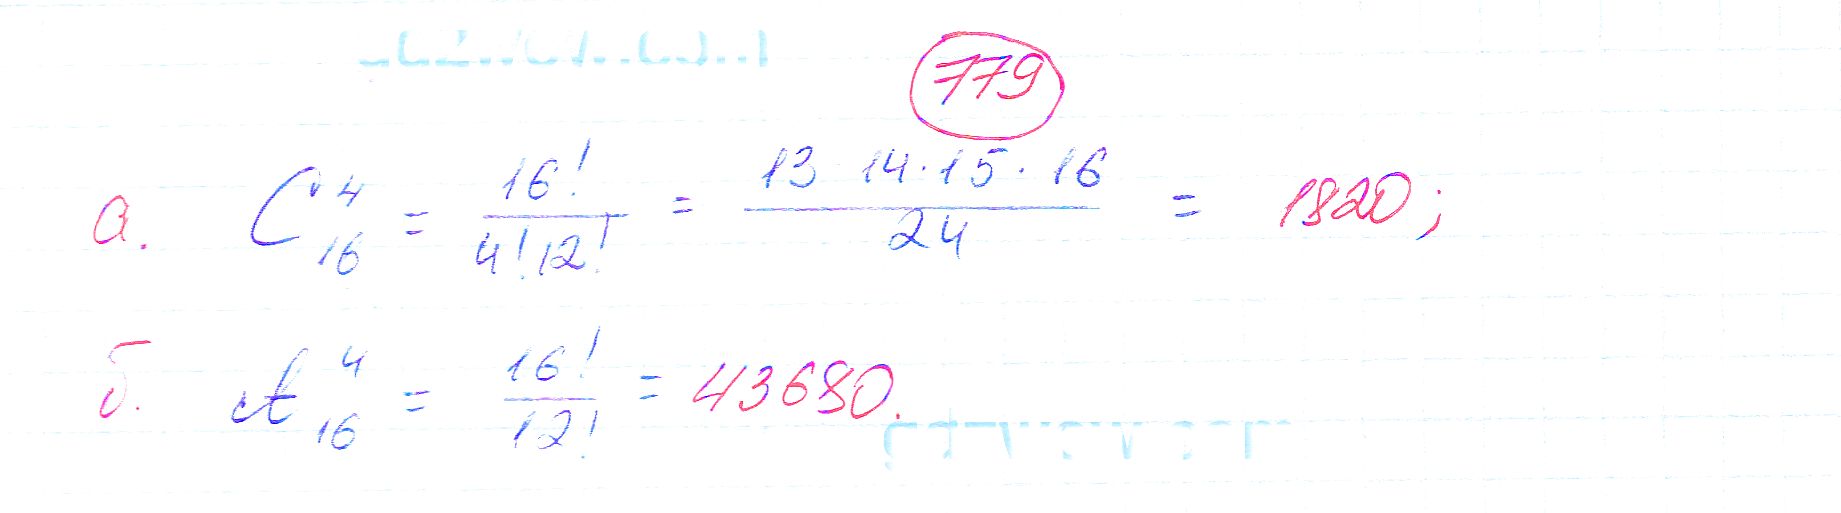 779
а. C⁴₁₆ = 16!/4!12! = 13 14·15·16/24 = 1820;
б. A⁴₁₆ = 16!/12! = 43680.